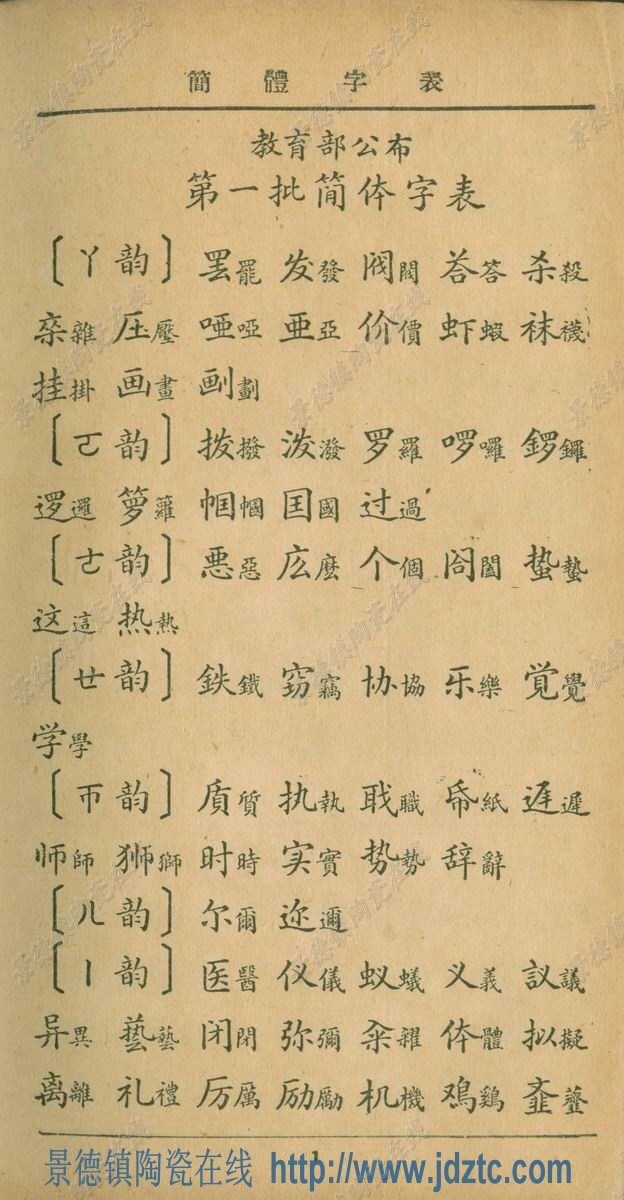 簡體字表
教育部公布
第一批简体字表
〔ㄚ韵〕罢罷 发發 阀閥 荅答 杀殺
杂雜 压壓 哑啞 亜亞 价價 虾蝦 袜襪
挂掛 画畫 劃
〔ㄛ韵〕拨撥 泼潑 罗羅 啰囉 鑼
逻邏 箩籮 帼幗 国國 过過
〔ㄜ韵〕悪惡 庅麼 个個 閤 蛰蟄
这這 热熱
〔ㄝ韵〕鉄鐵 窃竊 协協 乐樂 覚覺
学學
〔ㄭ韵〕质質 执執 职職 帋紙 遅遲
师師 狮獅 时時 实實 势勢 辞辭
〔ㄦ韵〕尔爾 迩邇
〔丨韵〕医醫 仪儀 蚁蟻 义義 议議
异異 藝 闭閉 弥彌 籴糴 体體 拟擬
离離 礼禮 厉厲 励勵 机機 鸡鷄 齑虀
1
景德镇陶瓷在线 http://www.jdztc.com